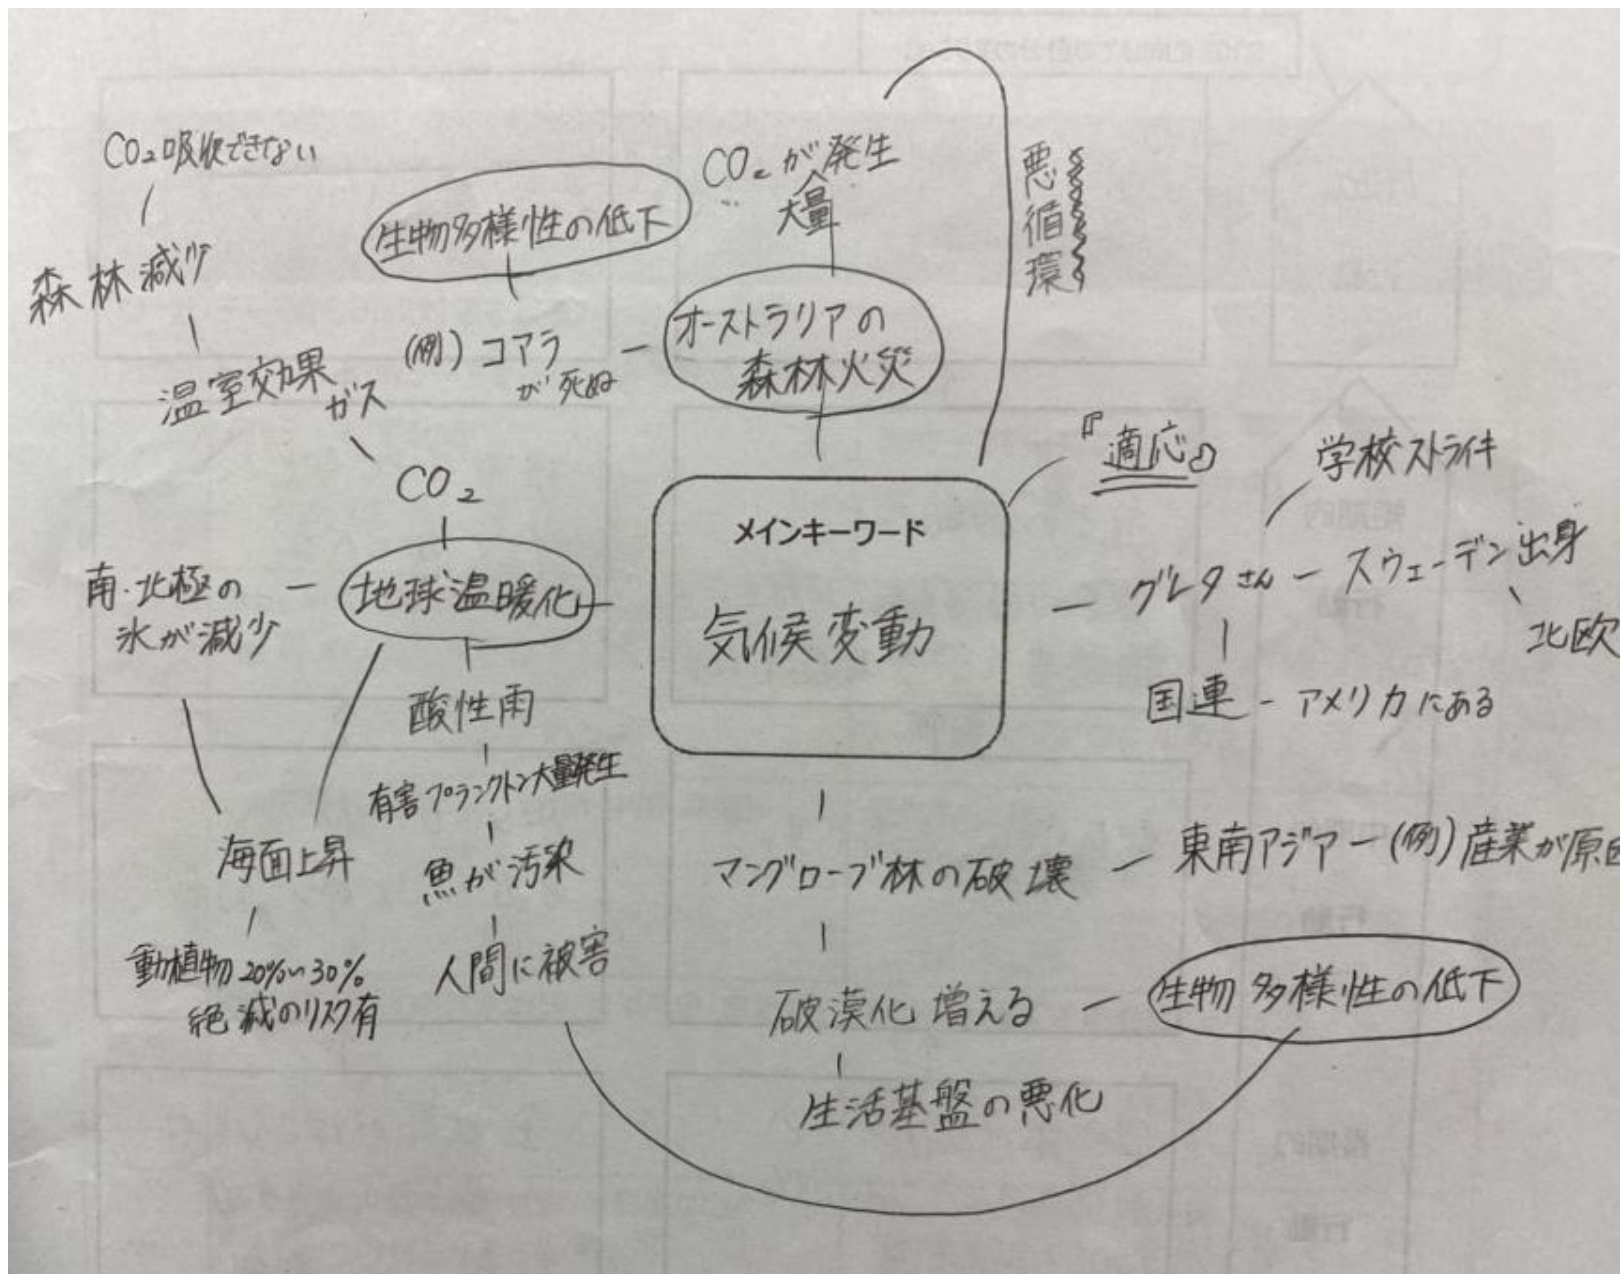 CO₂吸収できない
森林減少
温室効果
ガス
CO₂
生物多様性の低下
(例)コアラ
が死ぬ
CO₂が発生
大量
オーストラリアの
森林火災
悪循環
『適応』
メインキーワード
気候変動
学校ストライキ
グレタさん
スウェーデン出身
北欧
国連
アメリカにある
地球温暖化
南・北極の
氷が減少
酸性雨
有害プランクトン大量発生
魚が汚染
人間に被害
海面上昇
動植物20%〜30%
絶滅のリスク有
マングローブ林の破壊
東南アジア
(例)産業が原因
破漠化 増える
生物多様性の低下
生活基盤の悪化